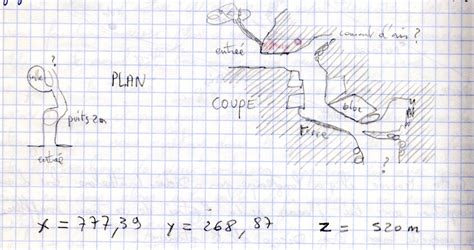 courant d'air ?
entrée
?
salle
PLAN
COUPE
bloc
puits 2m
entrée
?
X = 777,39 Y = 268,87 Z = 520 m